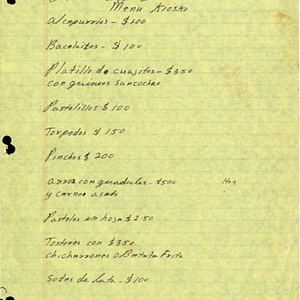 Menu Kiosko
alcapurrias - $100
Bacalaitos - $100
Platillo de cuajitos - $350
con guineos Sancochao
Pastelillos $100
Torpedos $150
Pinchos $200
arroz con guandules - $500
y carne asado
Pasteles en hoja $2.50
Tostones con $350
chicharrones o Batata Frita
Sodas de lata - $100